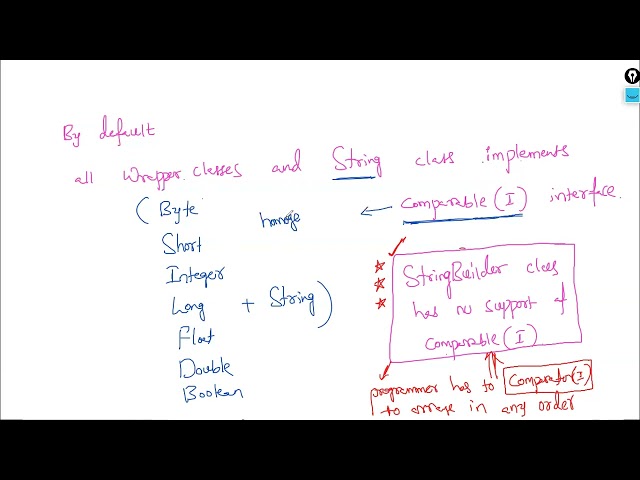 By default
all Wrapper classes and String class implements
(Byte ← Comparable(I) interface.
Short
Integer
Long + String)
Float
Double
Boolean
StringBuilder class
has no support of
Comparable(I)
programmer has to Comparator(I)
to in any order